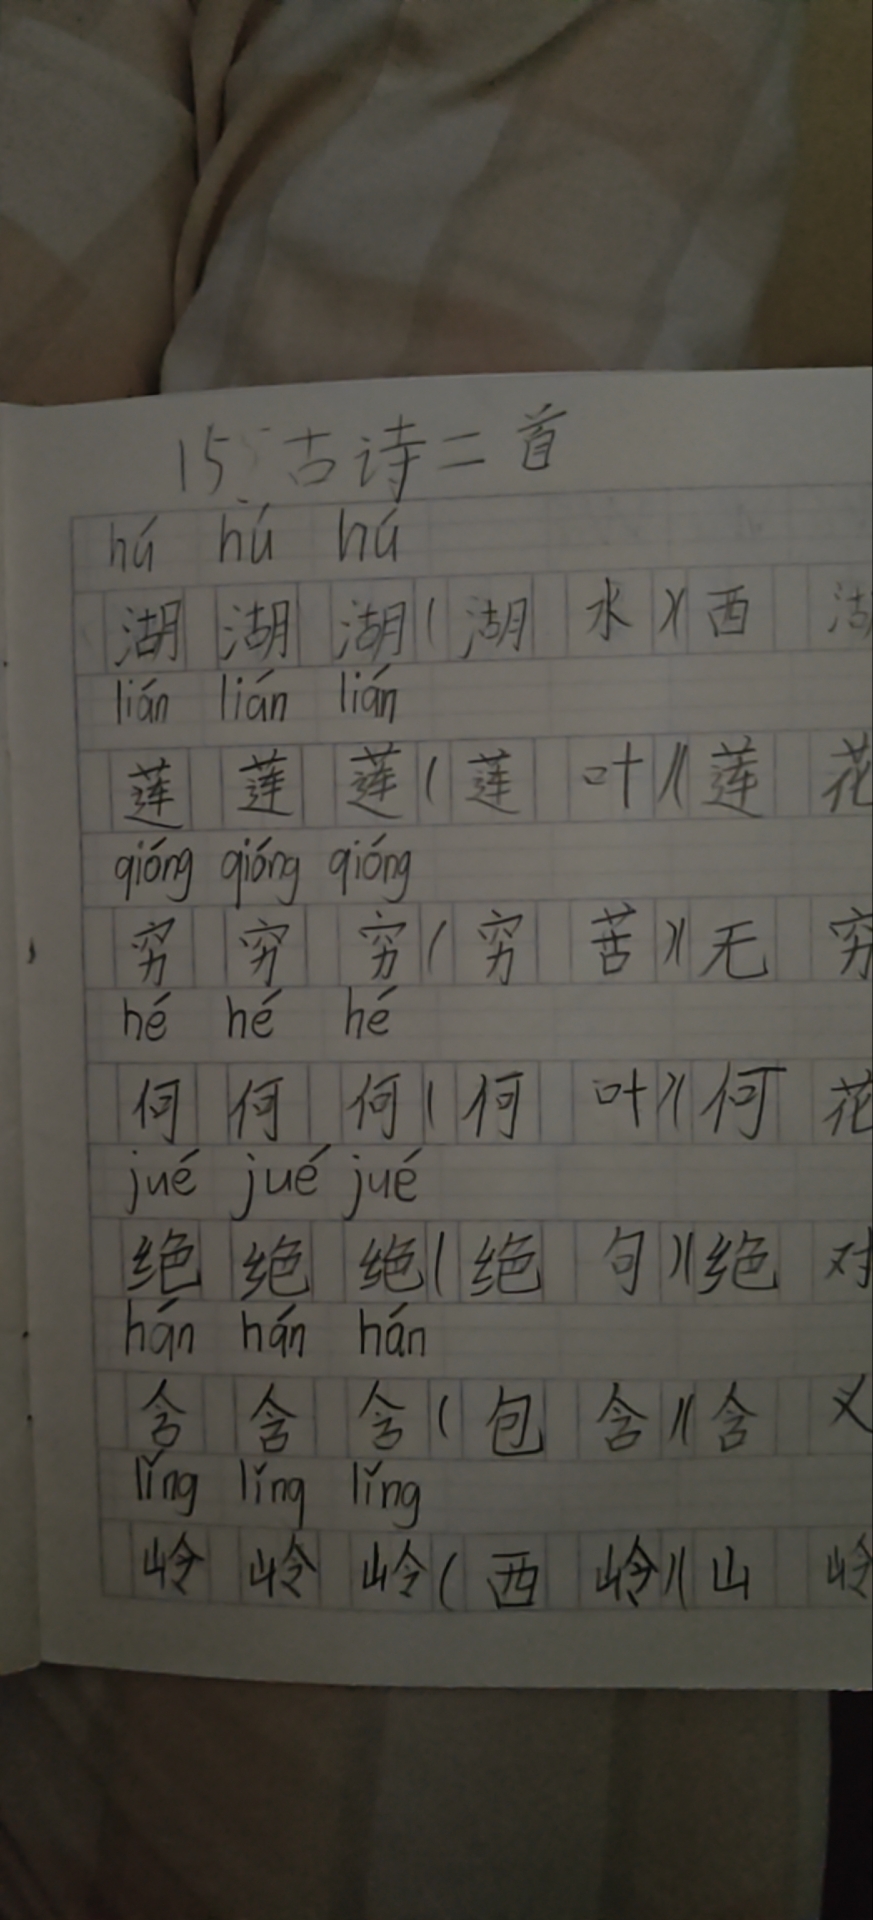 15 古诗二首
hú hú hú
湖 湖 湖 ( 湖 水 ) ( 西 湖
lián lián lián
莲 莲 莲 ( 莲 叶 ) ( 莲 花
qióng qióng qióng
穷 穷 穷 ( 穷 苦 ) ( 无 穷
hé hé hé
何 何 何 ( 何 叶 ) ( 何 花
jué jué jué
绝 绝 绝 ( 绝 句 ) ( 绝 对
hán hán hán
含 含 含 ( 包 含 ) ( 含 义
lǐng lǐng lǐng
岭 岭 岭 ( 西 岭 ) ( 山 岭